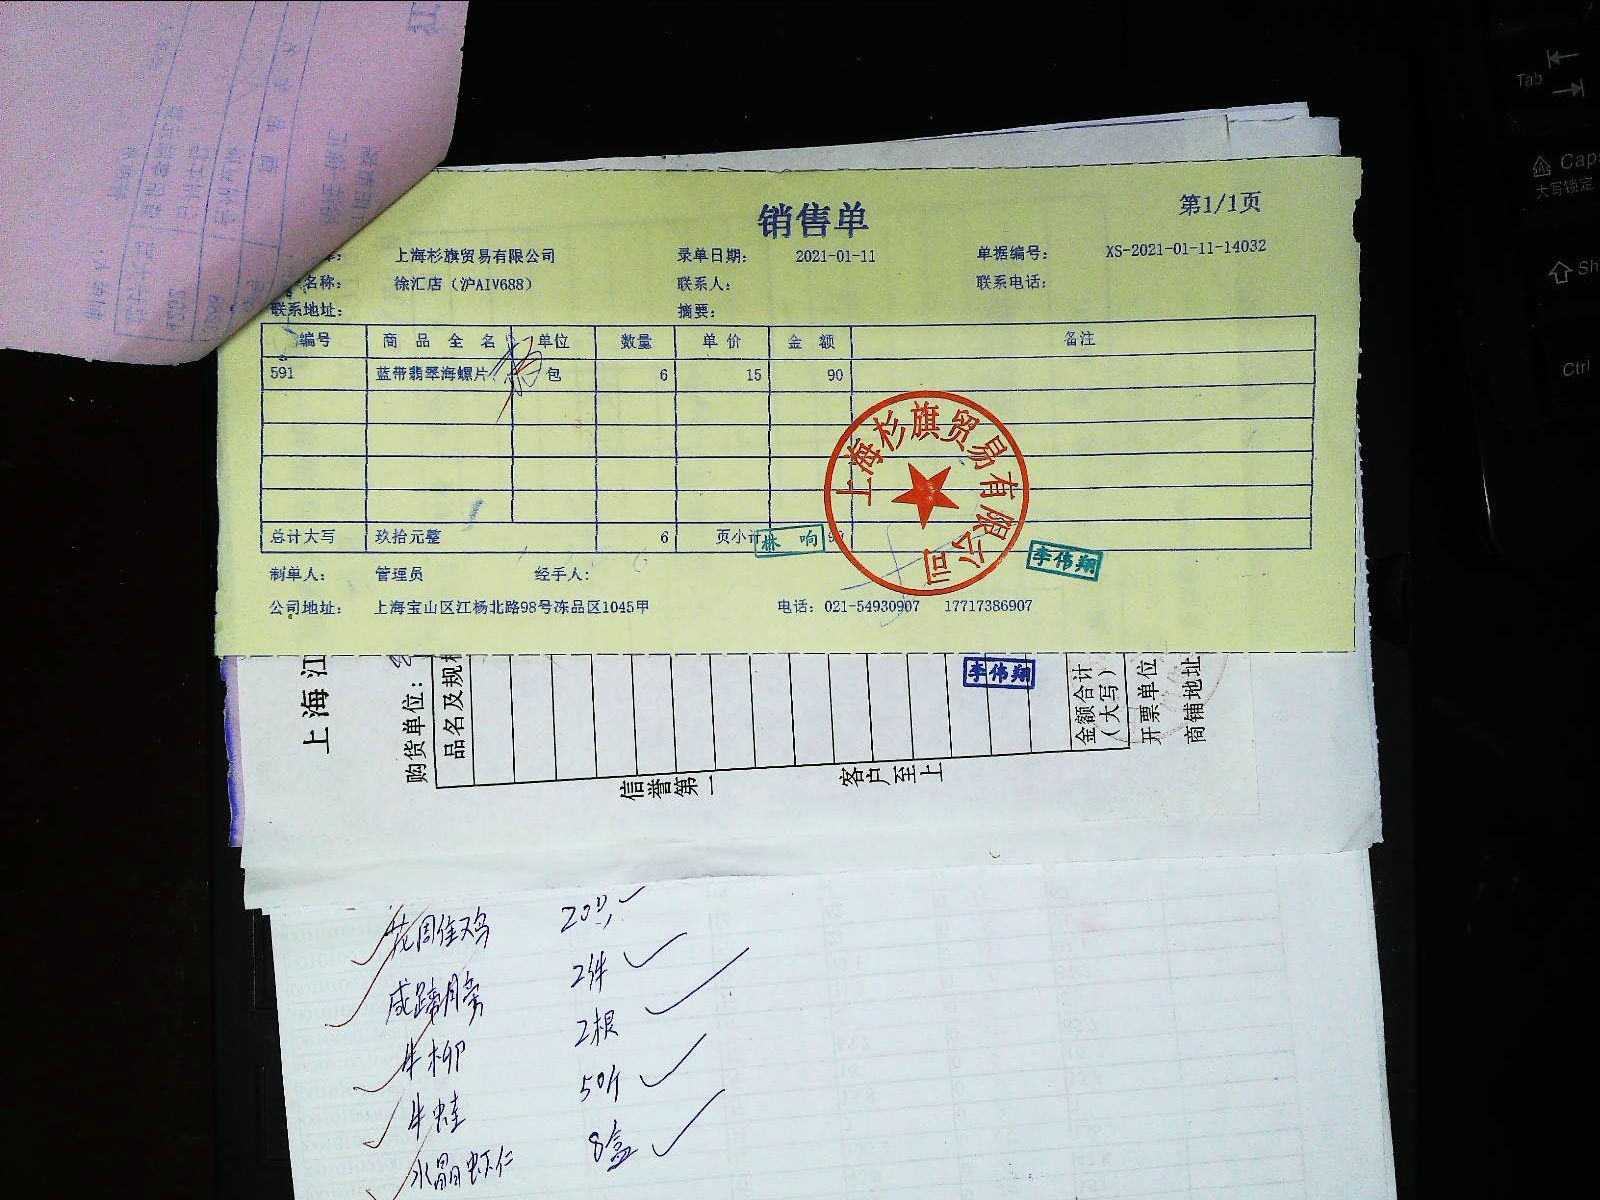 销售单
第1/1页
上海杉旗贸易有限公司 录单日期: 2021-01-11 单据编号: XS-2021-01-11-14032
名称: 徐汇店（沪AIV688） 联系人: 联系电话:
联系地址: 摘要:
编号 商品全名 单位 数量 单价 金额 备注
591 蓝带翡翠海螺片 包 6 15 90
总计大写 玖拾元整 6 页小计
林响
上海杉旗贸易有限公司
李伟翔
制单人: 管理员 经手人:
公司地址: 上海宝山区江杨北路98号冻品区1045甲 电话: 021-54930907 17717386907
上海江
购货单位:
品名及规格
李伟翔
金额合计
（大写）
开票单位
商铺地址
信誉第一 客户至上
20只
2件
牛柳 2根
牛蛙 50斤
水晶虾仁 8盒
Tab
Caps
大写锁定
Sh
Ctrl